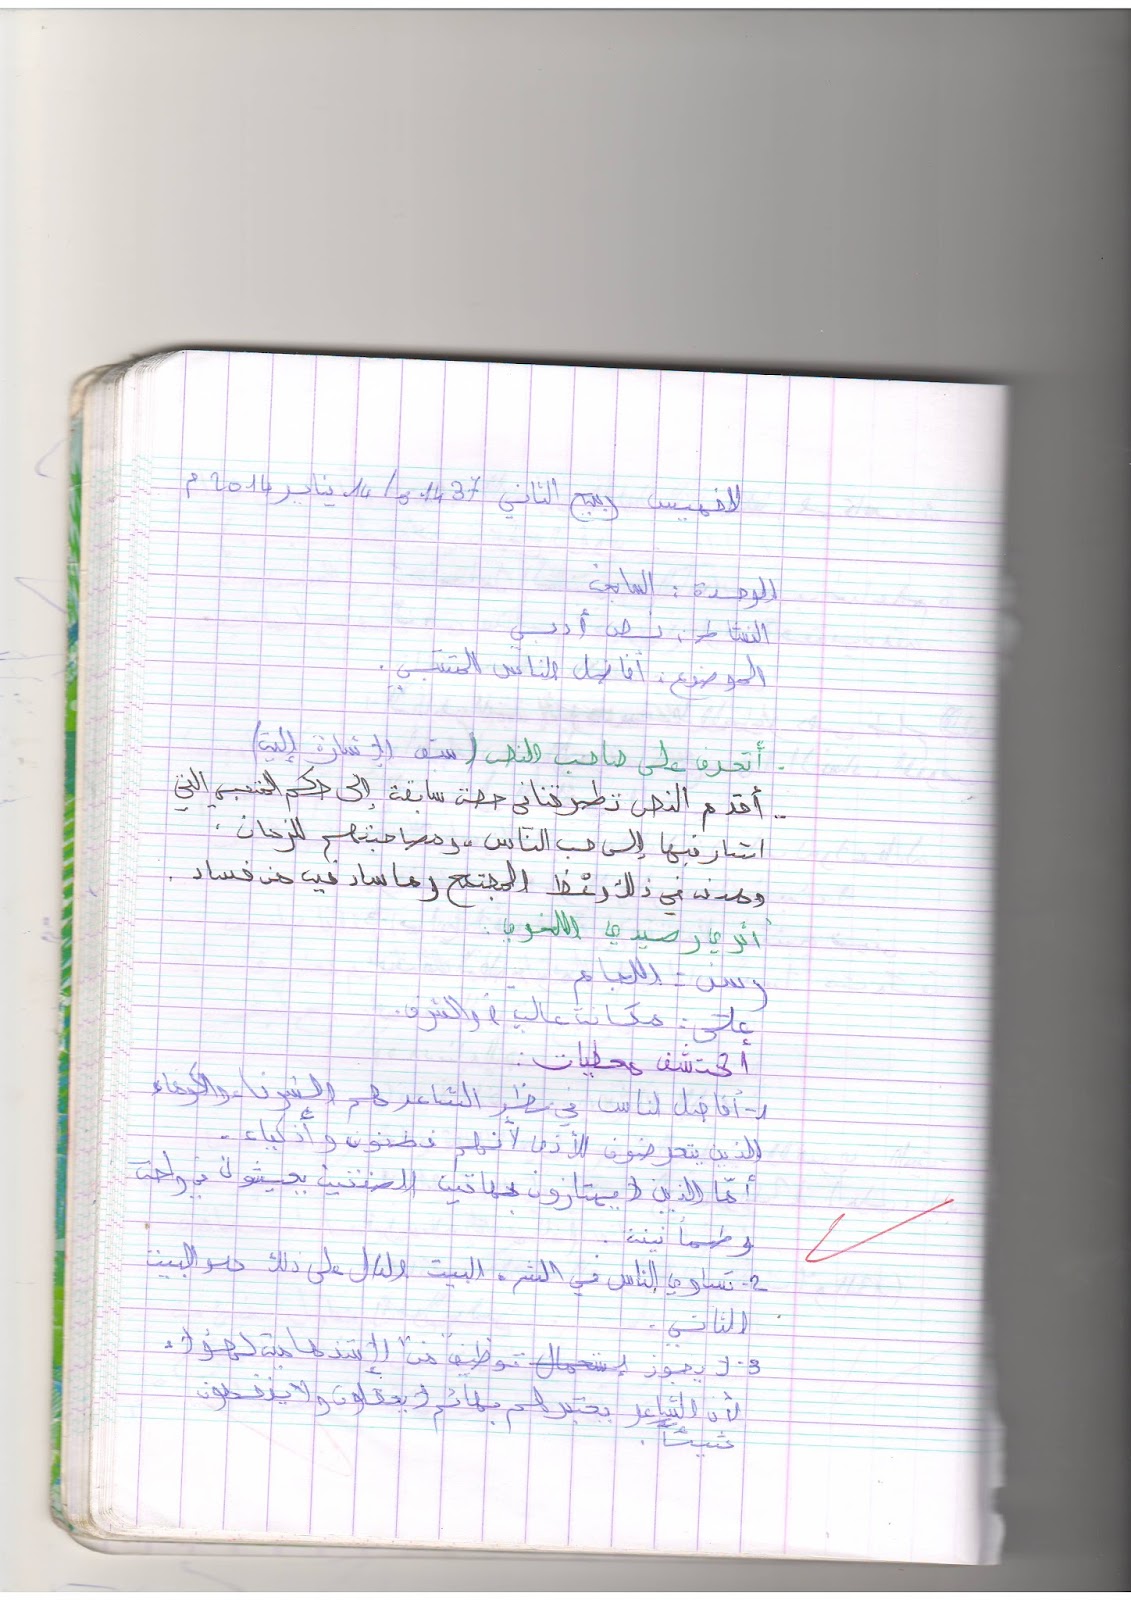 الخميس ربيع الثاني 1437 هـ/ 14 يناير 2014 م
الوحدة : السابعة
النشاط : نص أدبي
الموضوع : أفاضل الناس للمتنبي .
- أتعرف على صاحب النص (ستف الإشارة إلية)
- أقدم النص تطرقنا في حصة سابقة إلى حكم المتنبي التي
اشار فيها إلى حب الناس ومصاحبتهم للزمان .
وهدفه في ذلك وعْظ المجتمع وما ساد فيه من فساد .
أثري رصيدي اللغوي :
رسن : اللجام
على : مكانة عالية والشرف .
أكتشف معطيات :
1- أفاضل لناس في نظر الشاعر هم الشرفاء والكرماء
الذين يتعرضون للأذى لأنهم فطنون وأذكياء .
أمّا الذين لا يمتازون بهاتين الصفتين يعيشون في راحة
وطمأنينة .
2- تساوي الناس في الشر ، البيت الدال على ذلك هو البيت
الثاني .
3- لا يجوز إستعمال توظيف "من" الإستفهامية لهؤلاء
لأن الشاعر يعتبرهم بهائم لا يعقلون ولا يفقهون
شيئاً .